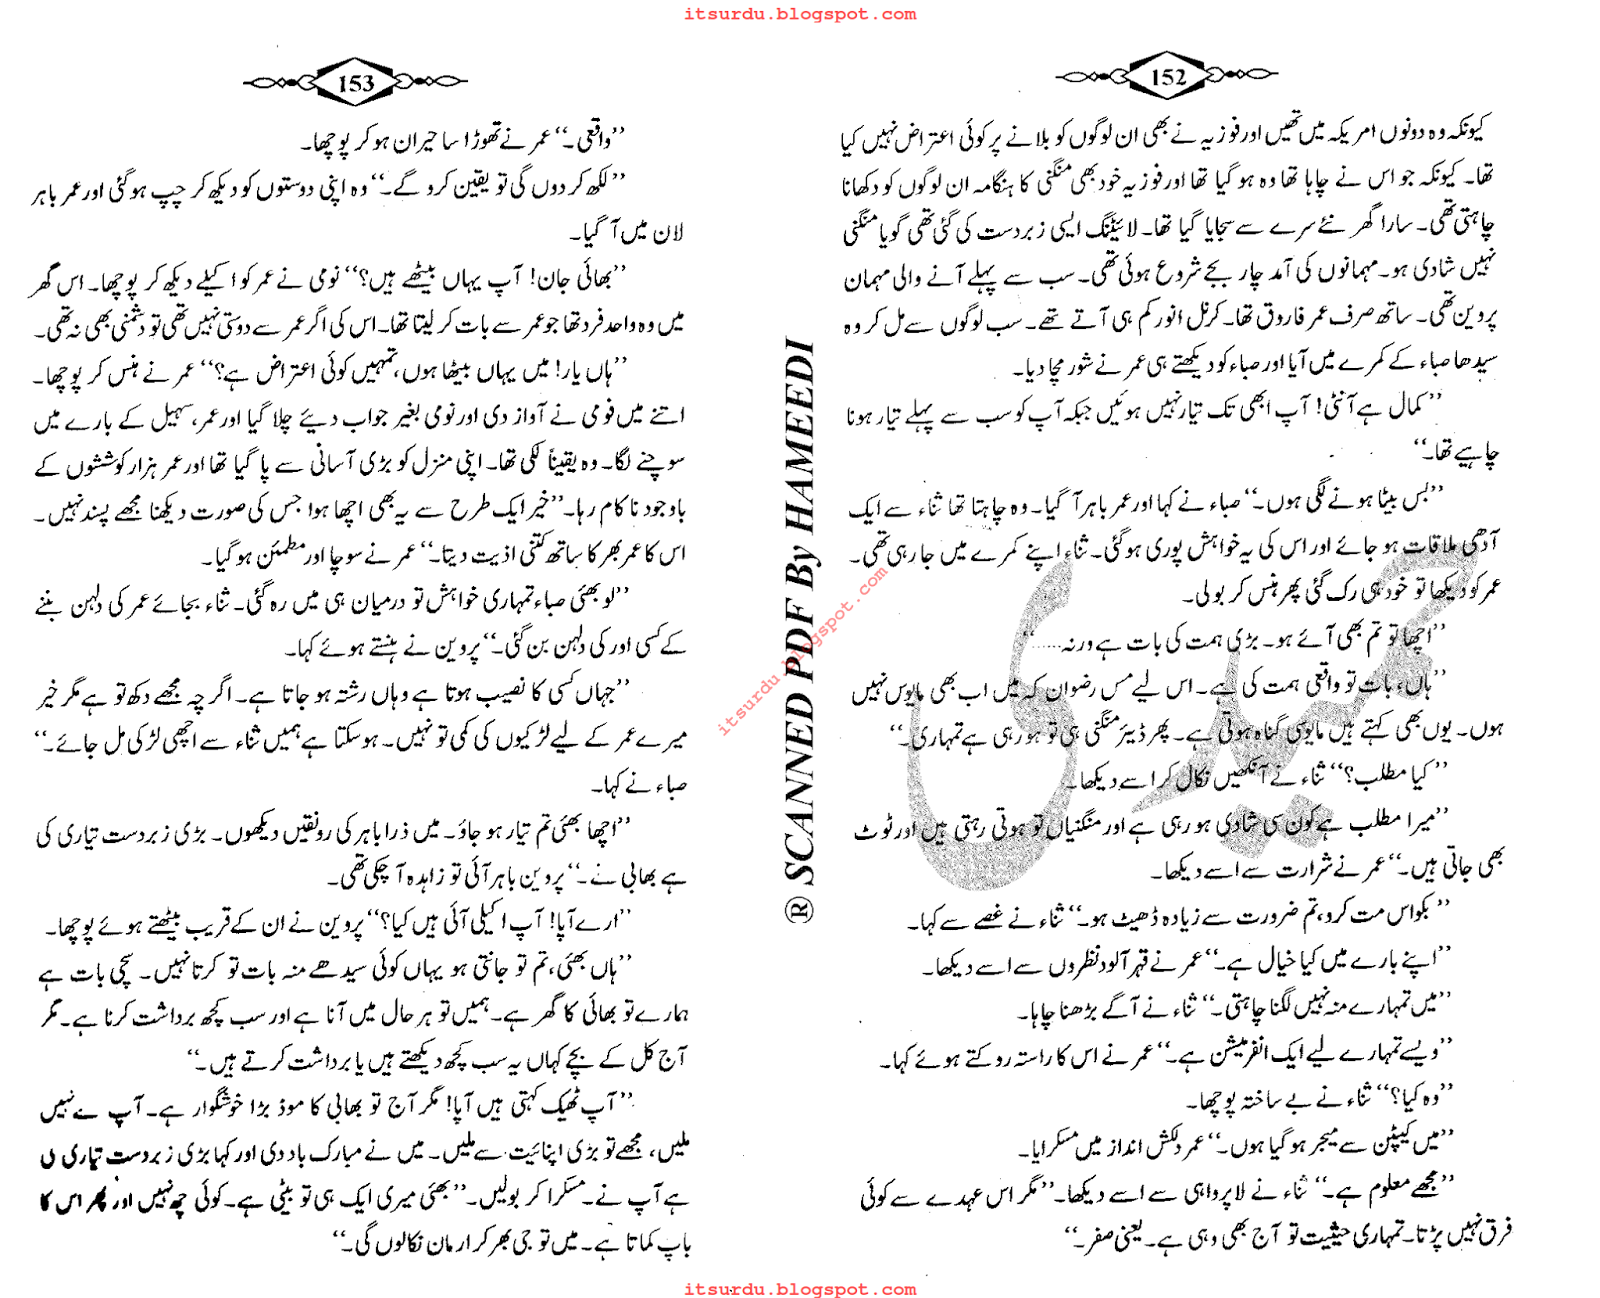 itsurdu.blogspot.com
152
کیونکہ وہ دونوں امریکہ میں تھیں اور فوزیہ نے بھی ان لوگوں کو بلانے پر کوئی اعتراض نہیں کیا
تھا۔ کیونکہ جو اس نے چاہا تھا وہ ہو گیا تھا اور فوزیہ خود بھی منگنی کا ہنگامہ ان لوگوں کو دکھانا
چاہتی تھی۔ سارا گھر نئے سرے سے سجایا گیا تھا۔ لائیٹنگ ایسی زبردست کی گئی تھی گویا منگنی
نہیں شادی ہو۔ مہمانوں کی آمد چار بجے شروع ہوئی تھی۔ سب سے پہلے آنے والی مہمان
پروین تھی۔ ساتھ صرف عمر فاروق تھا۔ کرنل انور کم ہی آتے تھے۔ سب لوگوں سے مل کر وہ
سیدھا صباء کے کمرے میں آیا اور صباء کو دیکھتے ہی عمر نے شور مچا دیا۔
”کمال ہے آنٹی! آپ ابھی تک تیار نہیں ہوئیں جبکہ آپ کو سب سے پہلے تیار ہونا
چاہیے تھا۔“
”بس بیٹا ہونے لگی ہوں۔“ صباء نے کہا اور عمر باہر آ گیا۔ وہ چاہتا تھا ثناء سے ایک
آدھی ملاقات ہو جائے اور اس کی یہ خواہش پوری ہو گئی۔ ثناء اپنے کمرے میں جا رہی تھی۔
عمر کو دیکھا تو خود ہی رک گئی پھر ہنس کر بولی۔
”اچھا تو تم بھی آئے ہو۔ بڑی ہمت کی بات ہے ورنہ.....“
”ہاں، بات تو واقعی ہمت کی ہے۔ اس لیے مس رضوان کہ میں اب بھی مایوس نہیں
ہوں۔ یوں بھی کہتے ہیں مایوسی گناہ ہوتی ہے۔ پھر ڈیئر منگنی ہی تو ہو رہی ہے تمہاری۔“
”کیا مطلب؟“ ثناء نے آنکھیں نکال کر اسے دیکھا۔
”میرا مطلب ہے کون سی شادی ہو رہی ہے اور منگنیاں تو ہوتی رہتی ہیں اور ٹوٹ
بھی جاتی ہیں۔“ عمر نے شرارت سے اسے دیکھا۔
”بکواس مت کرو، تم ضرورت سے زیادہ ڈھیٹ ہو۔“ ثناء نے غصے سے کہا۔
”اپنے بارے میں کیا خیال ہے۔“ عمر نے قہر آلود نظروں سے اسے دیکھا۔
”میں تمہارے منہ نہیں لگنا چاہتی۔“ ثناء نے آگے بڑھنا چاہا۔
”ویسے تمہارے لیے ایک انفرمیشن ہے۔“ عمر نے اس کا راستہ روکتے ہوئے کہا۔
”وہ کیا؟“ ثناء نے بے ساختہ پوچھا۔
”میں کیپٹن سے میجر ہو گیا ہوں۔“ عمر دلکش انداز میں مسکرایا۔
”مجھے معلوم ہے۔“ ثناء نے لاپرواہی سے اسے دیکھا۔ ”مگر اس عہدے سے کوئی
فرق نہیں پڑتا۔ تمہاری حیثیت تو آج بھی وہی ہے۔ یعنی صفر۔“
® SCANNED PDF By HAMEEDI
itsurdu.blogspot.com
حمیدی
153
”واقعی۔“ عمر نے تھوڑا سا حیران ہو کر پوچھا۔
”لکھ کر دوں گی تو یقین کرو گے۔“ وہ اپنی دوستوں کو دیکھ کر چپ ہو گئی اور عمر باہر
لان میں آ گیا۔
”بھائی جان! آپ یہاں بیٹھے ہیں؟“ نومی نے عمر کو اکیلے دیکھ کر پوچھا۔ اس گھر
میں وہ واحد فرد تھا جو عمر سے بات کر لیتا تھا۔ اس کی اگر عمر سے دوستی نہیں تھی تو دشمنی بھی نہ تھی۔
”ہاں یار! میں یہاں بیٹھا ہوں، تمہیں کوئی اعتراض ہے؟“ عمر نے ہنس کر پوچھا۔
اتنے میں فومی نے آواز دی اور نومی بغیر جواب دیئے چلا گیا اور عمر، سہیل کے بارے میں
سوچنے لگا۔ وہ یقیناً لکی تھا۔ اپنی منزل کو بڑی آسانی سے پا گیا تھا اور عمر ہزار کوششوں کے
باوجود ناکام رہا۔ ”خیر ایک طرح سے یہ بھی اچھا ہوا جس کی صورت دیکھنا مجھے پسند نہیں۔
اس کا عمر بھر کا ساتھ کتنی اذیت دیتا۔“ عمر نے سوچا اور مطمئن ہو گیا۔
”لو بھئی صباء تمہاری خواہش تو درمیان ہی میں رہ گئی۔ ثناء بجائے عمر کی دلہن بننے
کے کسی اور کی دلہن بن گئی۔“ پروین نے ہنستے ہوئے کہا۔
”جہاں کسی کا نصیب ہوتا ہے وہاں رشتہ ہو جاتا ہے۔ اگرچہ مجھے دکھ تو ہے مگر خیر
میرے عمر کے لیے لڑکیوں کی کمی تو نہیں۔ ہو سکتا ہے ہمیں ثناء سے اچھی لڑکی مل جائے۔“
صباء نے کہا۔
”اچھا بھئی تم تیار ہو جاؤ۔ میں ذرا باہر کی رونقیں دیکھوں۔ بڑی زبردست تیاری کی
ہے بھابی نے۔“ پروین باہر آئی تو زاہدہ آ چکی تھی۔
”ارے آپا! آپ اکیلی آئی ہیں کیا؟“ پروین نے ان کے قریب بیٹھتے ہوئے پوچھا۔
”ہاں بھئی، تم تو جانتی ہو یہاں کوئی سیدھے منہ بات تو کرتا نہیں۔ سچی بات ہے
ہمارے تو بھائی کا گھر ہے۔ ہمیں تو ہر حال میں آنا ہے اور سب کچھ برداشت کرنا ہے۔ مگر
آج کل کے بچے کہاں یہ سب کچھ دیکھتے ہیں یا برداشت کرتے ہیں۔“
”آپ ٹھیک کہتی ہیں آپا! مگر آج تو بھابی کا موڈ بڑا خوشگوار ہے۔ آپ سے نہیں
ملیں، مجھے تو بڑی اپنائیت سے ملیں۔ میں نے مبارک باد دی اور کہا بڑی زبردست تیاری
ہے آپ نے۔ مسکرا کر بولیں۔ ”بھئی میری ایک ہی تو بیٹی ہے۔ کوئی نہیں اور پھر اس کا
باپ کماتا ہے۔ میں تو جی بھر کر ارمان نکالوں گی۔“
itsurdu.blogspot.com